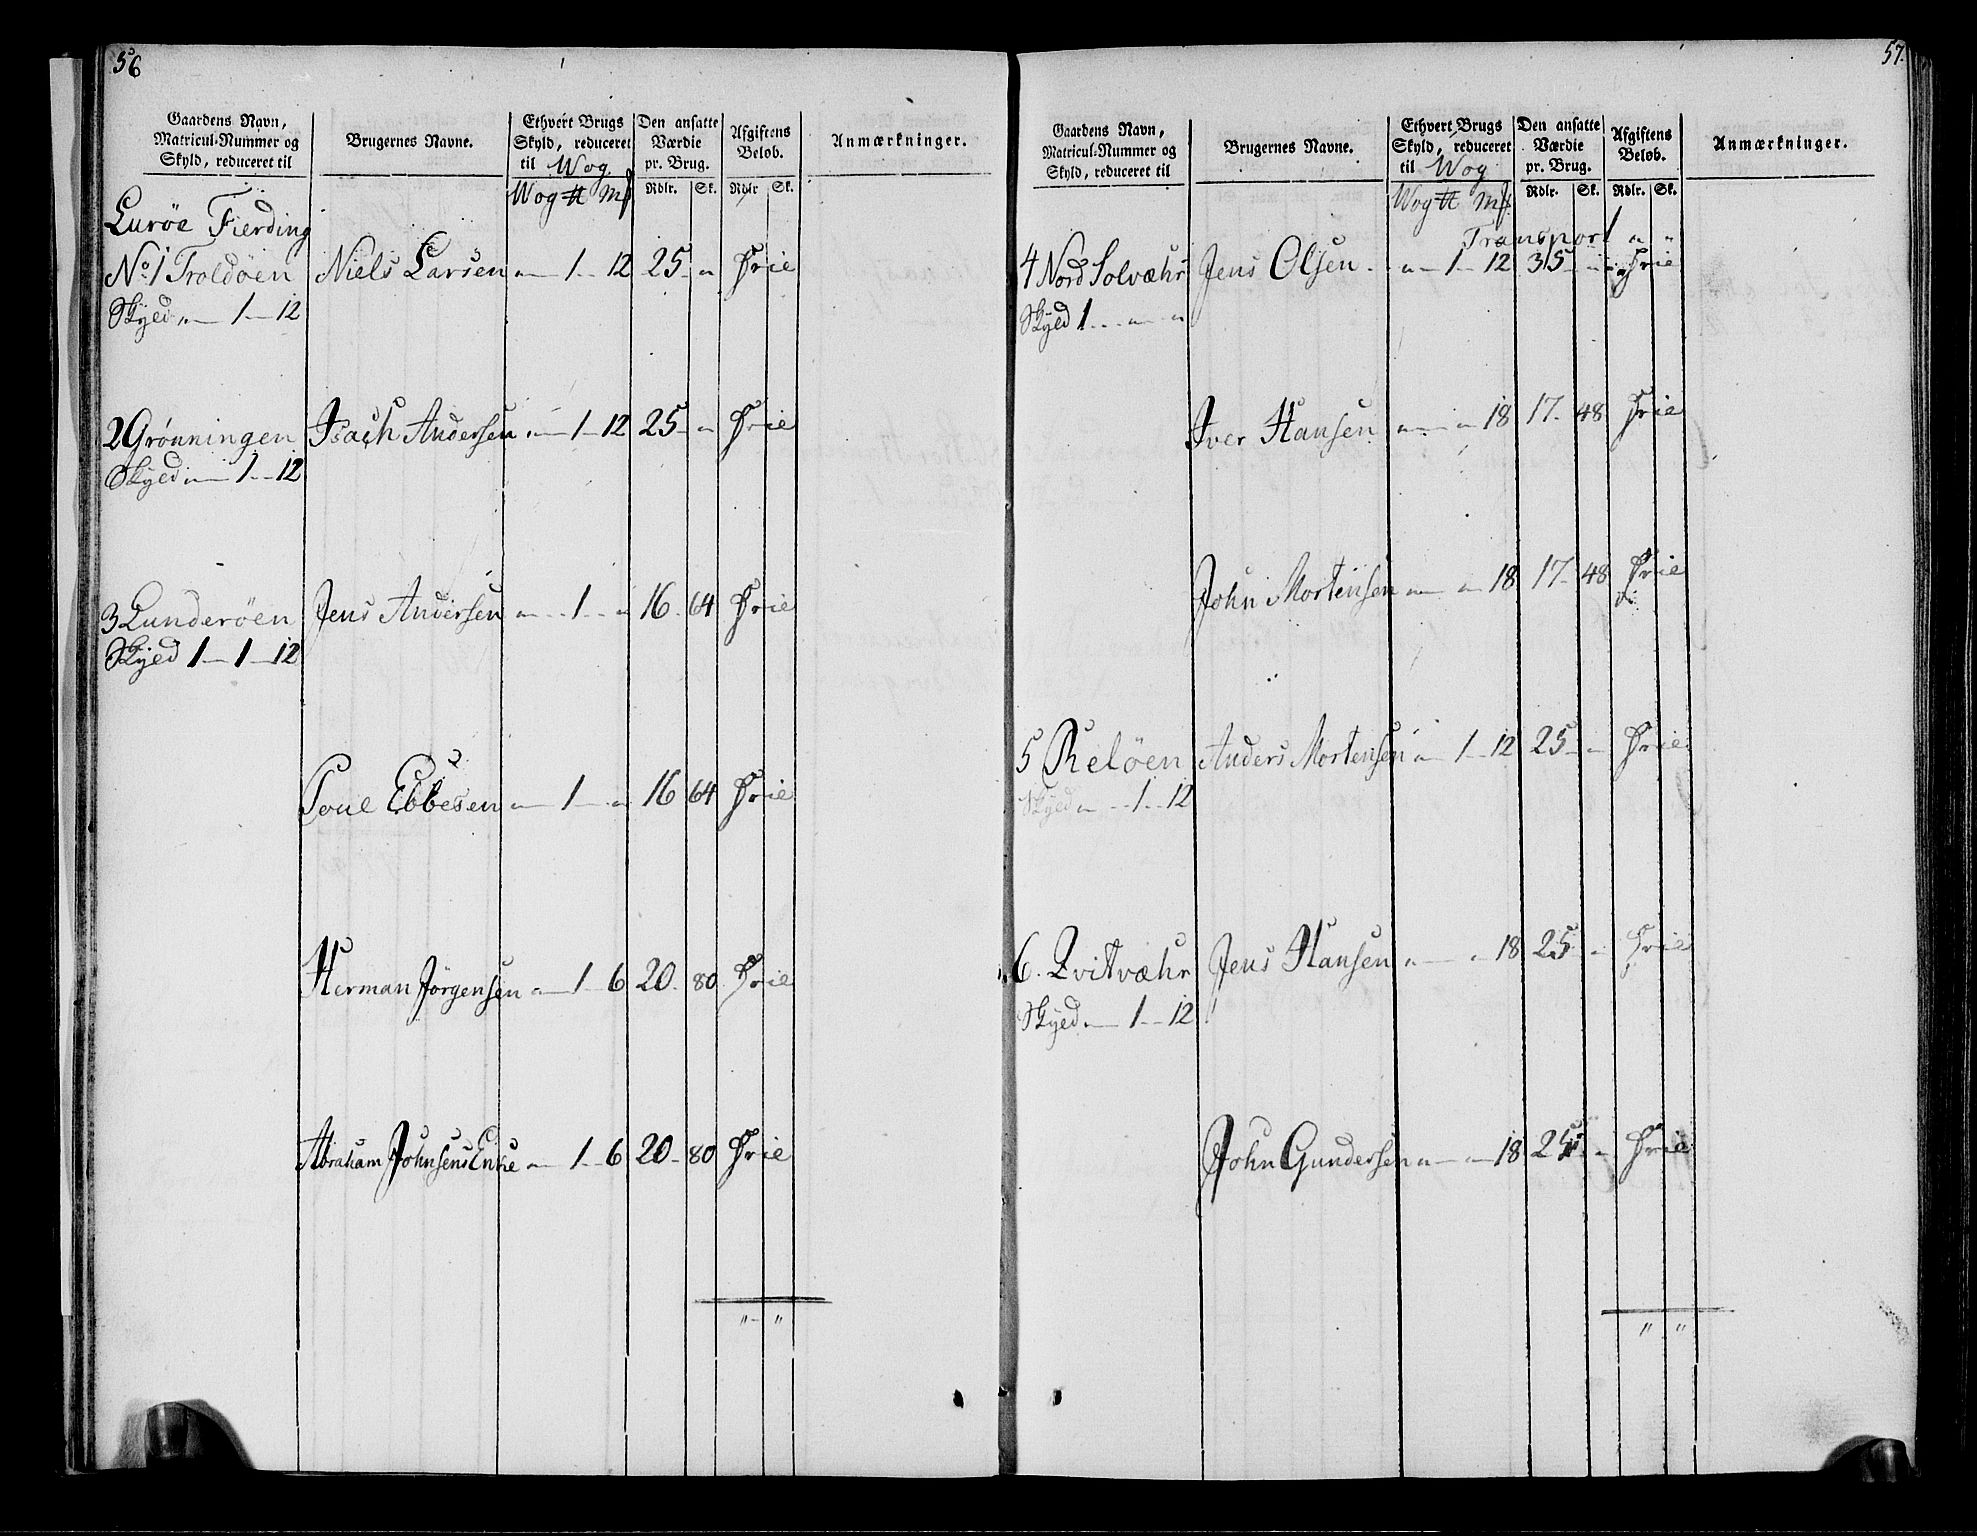 56
Gaardens Navn, Matricul-Nummer og Skyld, reduceret til | Brugernes Navne. | Ethvert Brugs Skyld, reduceret til Wog | Den ansatte Værdie pr. Brug. | Afgiftens Beløb. | Anmærkninger.
Wog ℔ Mk | Rdlr. | Sk. | Rdlr | Sk.
Lurøe Fierding
No. 1 Troldøen | Niels Larsen | " 1 12 | 25 | " | Frie
Skyld " 1 12
2 Grønningen | Isach Andersen | " 1 12 | 25 | " | Frie
Skyld " 1 12
3 Lunderøen | Jens Andersen | " 1 " | 16 | 64 | Frie
Skyld 1 1 12
Ebbesen | " 1 " | 16 | 64 | Frie
Herman Jörgensen | " 1 6 | 20 | 80 | Frie
Abraham Johnsens Enke | " 1 6 | 20 | 80 | Frie
" "
57.
Gaardens Navn, Matricul-Nummer og Skyld, reduceret til | Brugernes Navne. | Ethvert Brugs Skyld, reduceret til Wog | Den ansatte Værdie pr. Brug. | Afgiftens Beløb. | Anmærkninger.
Wog ℔ Mk | Rdlr. | Sk. | Rdlr. | Sk.
Transport " "
4 Nord Solvæhr | Jens Olsen | " 1 12 | 35 | " | Frie
Skyld 1 " "
Iver Hansen | " " 18 | 17 | 48 | Frie
John Mortensen | " " 18 | 17 | 48 | Frie
5 Reløen | Anders Mortensen | " 1 12 | 25 | " | Frie
Skyld " 1 12
6. Qvitvæhr | Jens Hansen | " " 18 | 25 | " | Frie
Skyld " 1 12
John Gundersen | " " 18 | 25 | " | Frie
" "